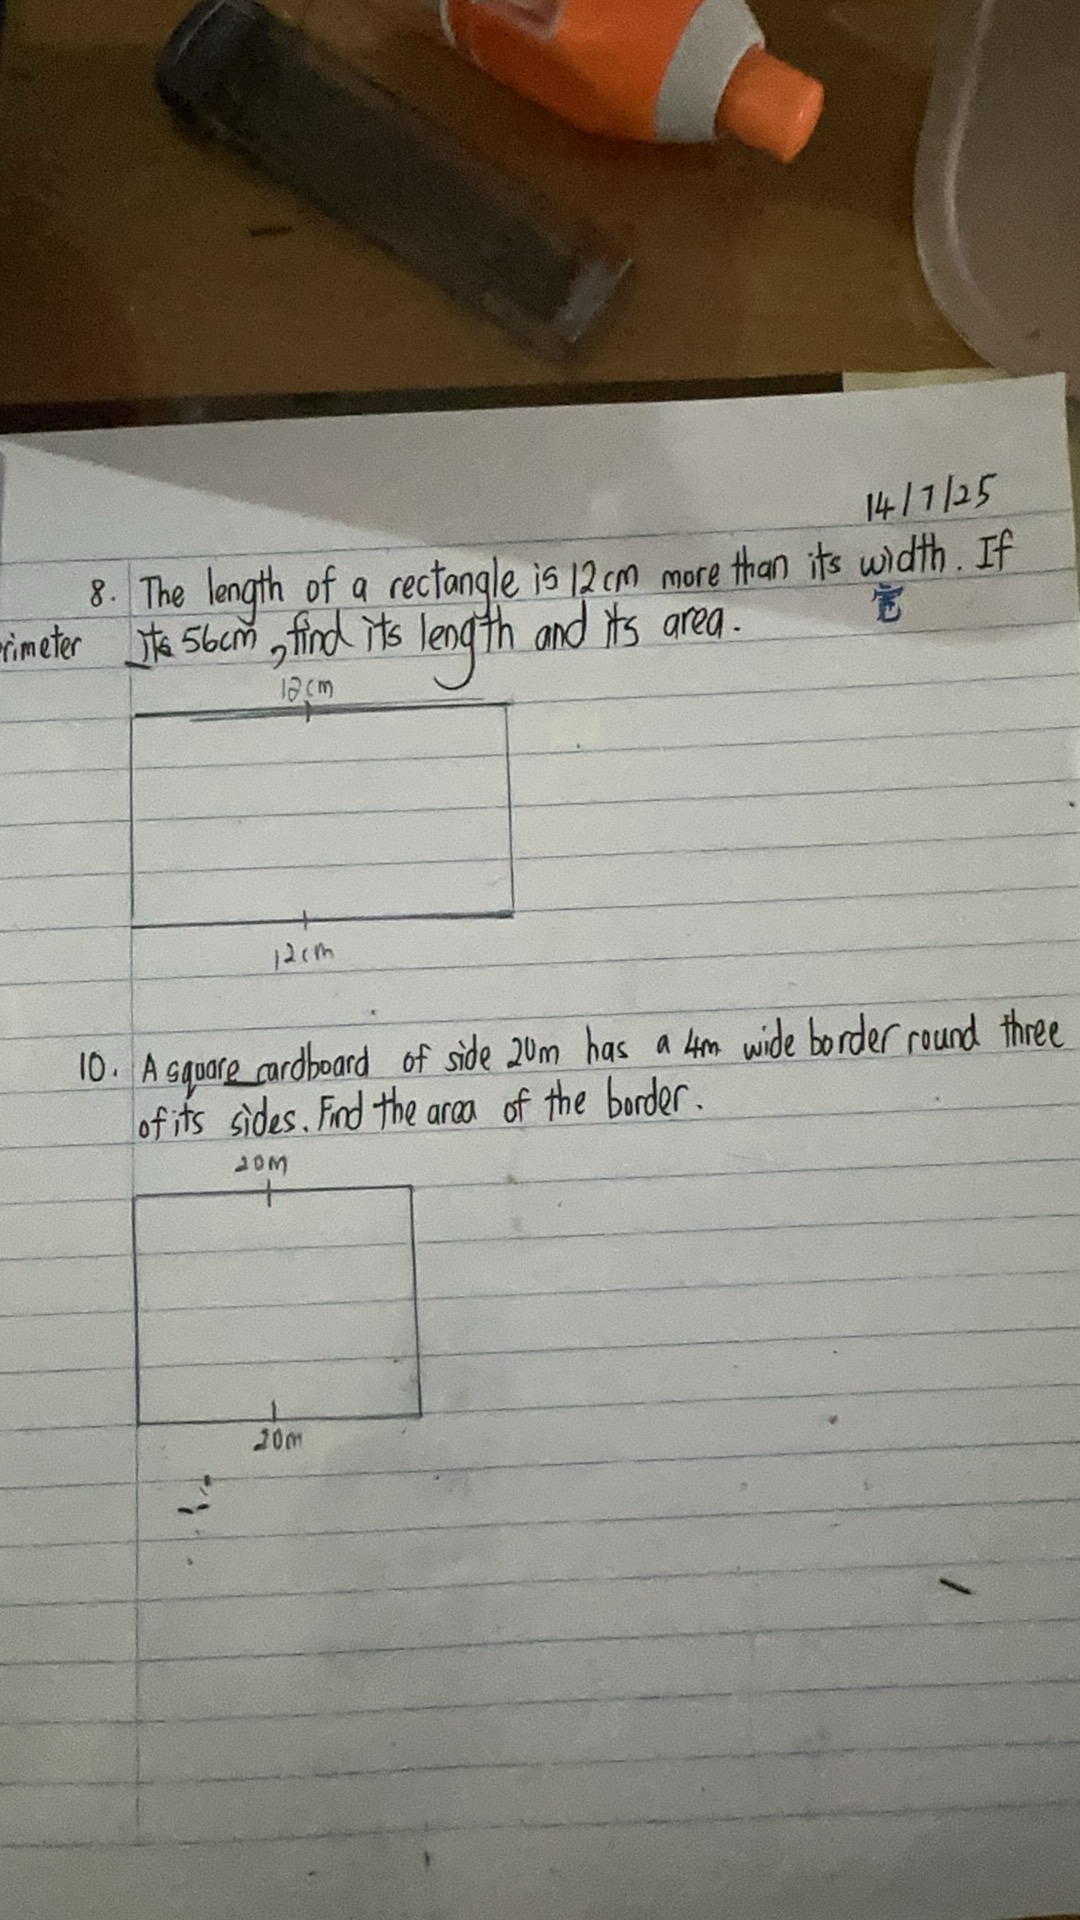 14/7/25
8. The length of a rectangle is 12cm more than its width. If
its 56cm, find its length and its area.
12cm
12cm
10. A square cardboard of side 20m has a 4m wide border round three
of its sides. Find the area of the border.
20m
20m